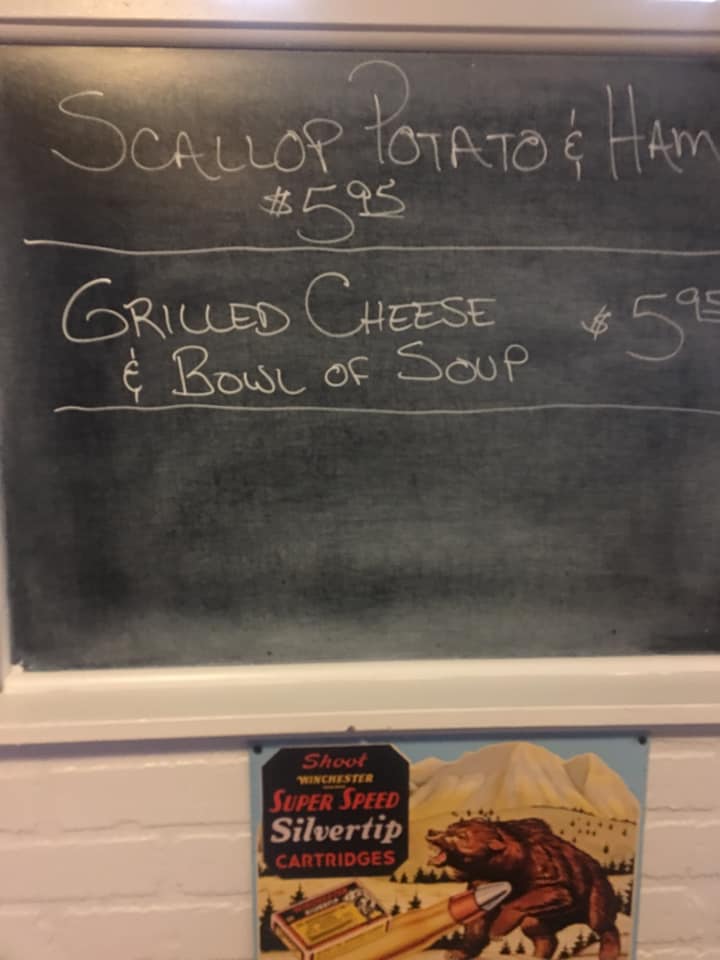 SCALLOP POTATO & HAM
$5.95
GRILLED CHEESE $5.95
& BOWL OF SOUP
Shoot
WINCHESTER
SUPER SPEED
Silvertip
CARTRIDGES